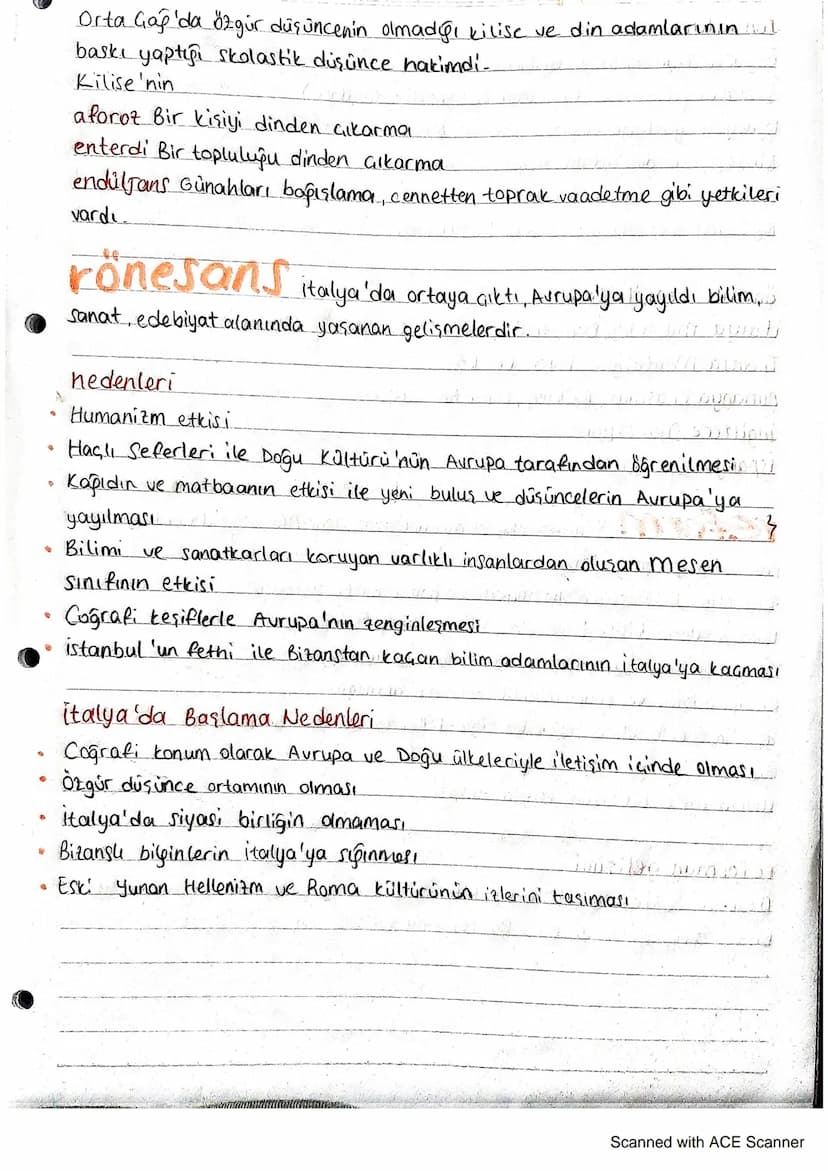 Orta Çağ'da özgür düşüncenin olmadığı kilise ve din adamlarının
baskı yaptığı skolastik düşünce hakimdi.
Kilise'nin
aforoz Bir kişiyi dinden çıkarma
enterdi Bir topluluğu dinden çıkarma
endüljans Günahları bağışlama, cennetten toprak vaadetme gibi yetkileri
vardı.
rönesans italya'da ortaya çıktı, Avrupa'ya yayıldı bilim,
sanat, edebiyat alanında yaşanan gelişmelerdir.
nedenleri
• Humanizm etkisi
• Haçlı Seferleri ile Doğu Kültürü'nün Avrupa tarafından öğrenilmesi
• Kağıdın ve matbaanın etkisi ile yeni buluş ve düşüncelerin Avrupa'ya
yayılması
• Bilimi ve sanatkarları koruyan varlıklı insanlardan oluşan Mesen
sınıfının etkisi
• Coğrafi keşiflerle Avrupa'nın zenginleşmesi
• istanbul'un fethi ile Bizanstan kaçan bilim adamlarının italya'ya kaçması
italya'da Başlama Nedenleri
• Coğrafi konum olarak Avrupa ve Doğu ülkeleriyle iletişim içinde olması
• Özgür düşünce ortamının olması
• italya'da siyasi birliğin olmaması
• Bizanslı bilginlerin italya'ya sığınması
• Eski Yunan Hellenizm ve Roma kültürünün izlerini taşıması
Scanned with ACE Scanner